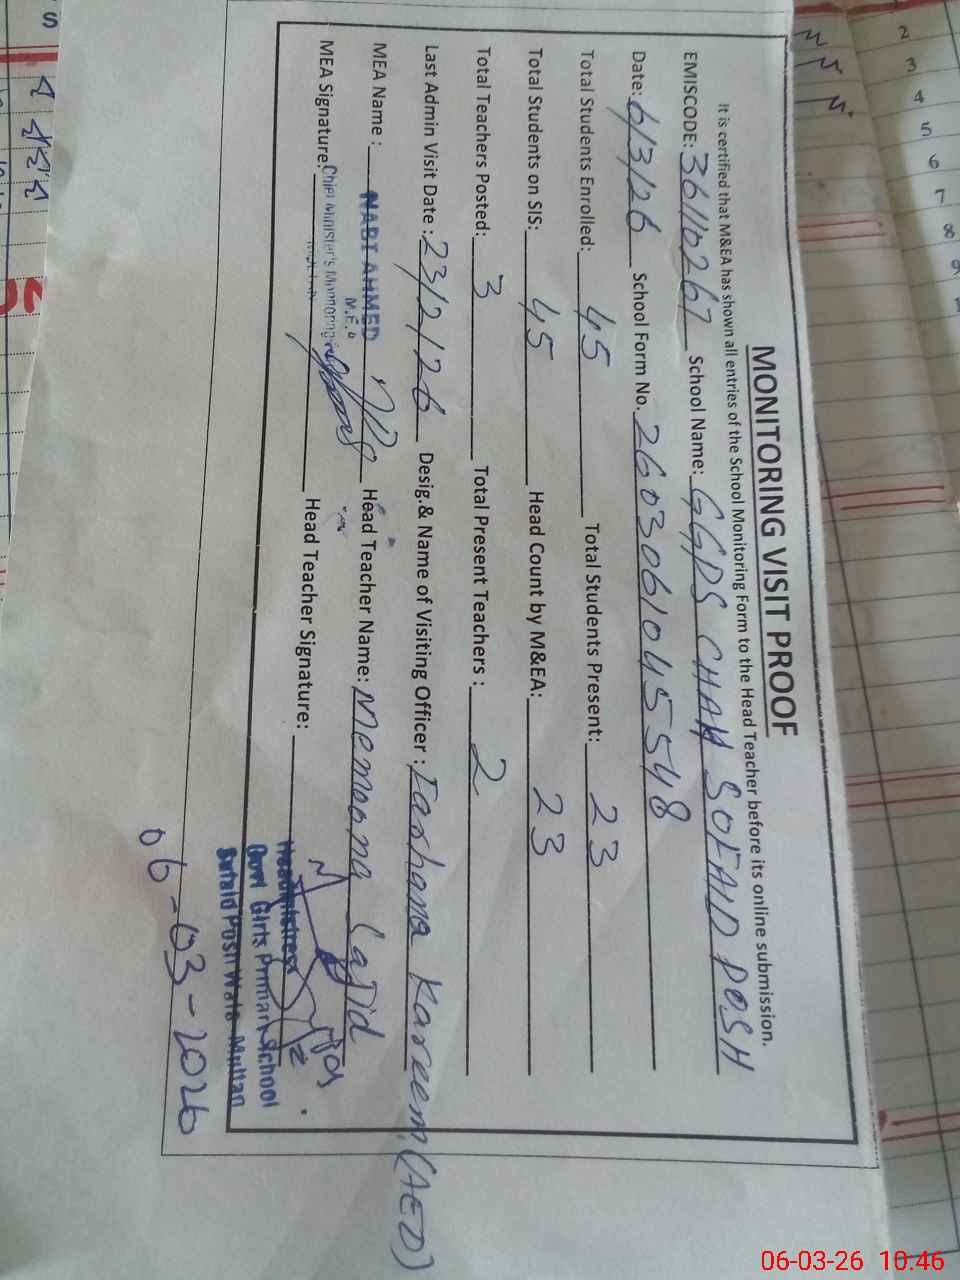 MONITORING VISIT PROOF
It is certified that M&EA has shown all entries of the School Monitoring Form to the Head Teacher before its online submission.
EMISCODE: 36110267 School Name: GGPS CHAH SUFAID POSH
Date: 6/3/26 School Form No. 2603061045548
Total Students Enrolled: 45 Total Students Present: 23
Total Students on SIS: 45 Head Count by M&EA: 23
Total Teachers Posted: 3 Total Present Teachers : 2
Last Admin Visit Date : 23/2/26 Desig.& Name of Visiting Officer : Kareem (AED)
MEA Name : NABI AHMED Head Teacher Name: Memoona
M.E.A
MEA Signature: Chief Minister's Monitoring Head Teacher Signature:
Headmistress
Govt Girls Primary School
Sufaid Posh Wala Multan
06-03-2026
2
3
4
5
6
7
8
9
S
06-03-26 10.46